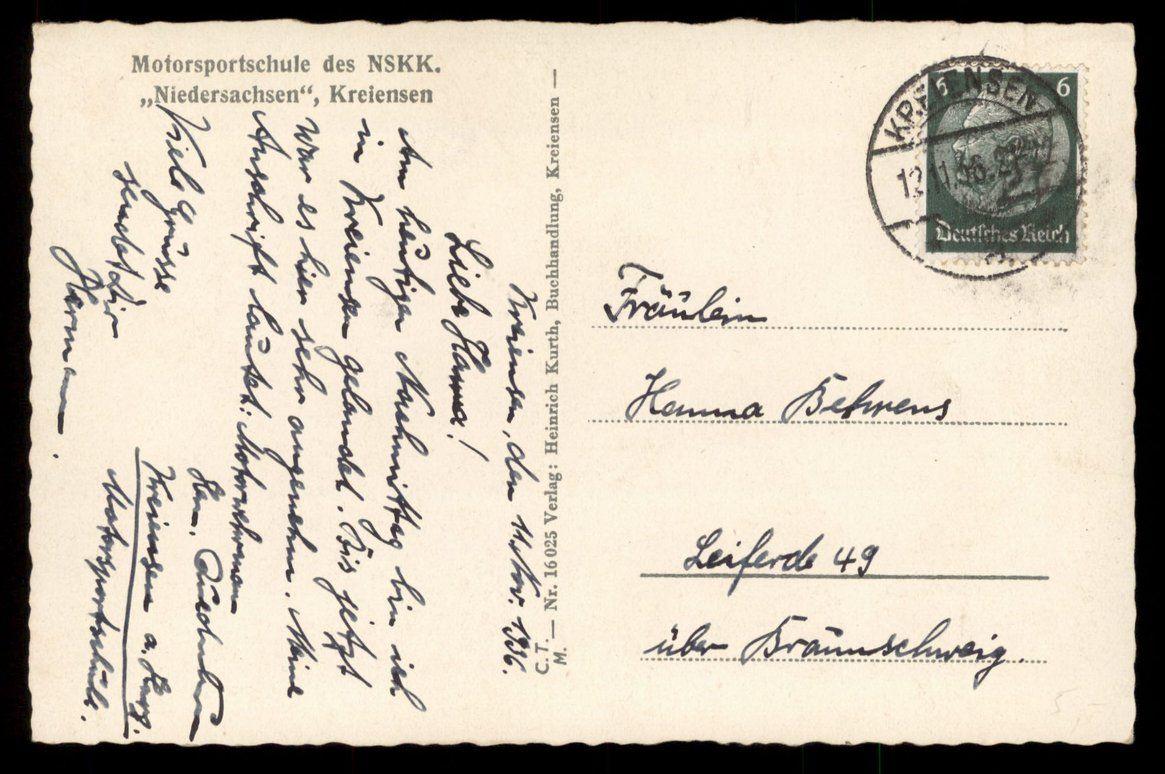 Motorsportschule des NSKK.
„Niedersachsen“, Kreiensen
Kreiensen, den 11. Nov. 1936.
Liebe Hanna!
Am heutigen Nachmittag bin ich
in Kreiensen gelandet. Bis jetzt
war es hier sehr angenehm. Meine
Anschrift lautet: Motorwehrmann
Herm.
Kreiensen a. Harz.
Motorsportschule.
Viele Grüsse
sendet Dir
Hermann.
C. T. M. — Nr. 16 025 Verlag: Heinrich Kurth, Buchhandlung, Kreiensen —
KREIENSEN
12.11.36.
6 6
Deutsches Reich
Fräulein
Hanna Behrens
Leiferde 49
über Braunschweig.